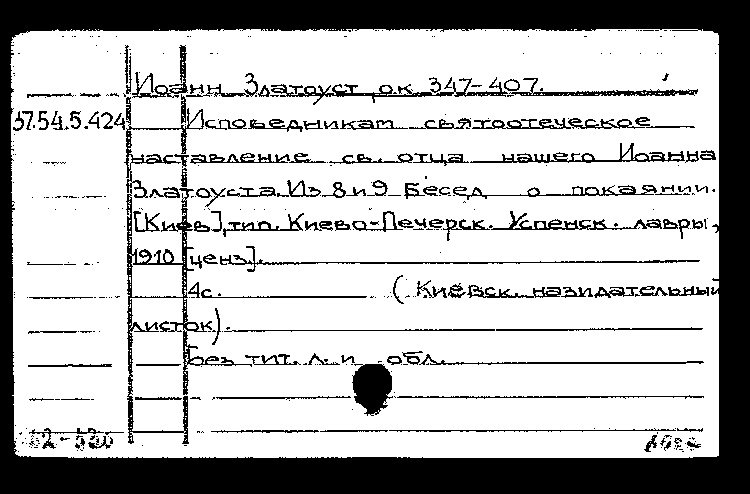 Иоанн Златоуст ок 347-407.
37.54.5.424 Исповедникам святоотеческое
наставление св. отца нашего Иоанна
Златоуста. Из 8 и 9 Бесед о покаянии.
[Киев], тип. Киево-Печерск. Успенск. лавры,
1910 [ценз].
4с. (Киевск. назидательный
листок).
Без тит. л. и обл.